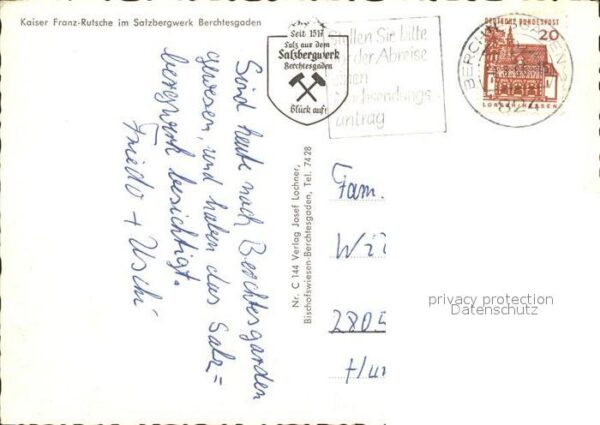 Kaiser Franz-Rutsche im Salzbergwerk Berchtesgaden
Seit 1517
Salz aus dem
Salzbergwerk
Berchtesgaden
Glück auf!
Stellen Sie bitte
vor der Abreise
einen
Nachsendungs-
antrag
DEUTSCHE BUNDESPOST
20
LORSCH/HESSEN
Sind heute nach Berchtesgarden
gewesen, und haben das Salz=
bergwerk besichtigt.
Friedo + Uschi
Nr. C 144 Verlag Josef Lochner,
Bischofswiesen-Berchtesgaden, Tel. 7428
Fam.
Wi
2805
privacy protection
Datenschutz